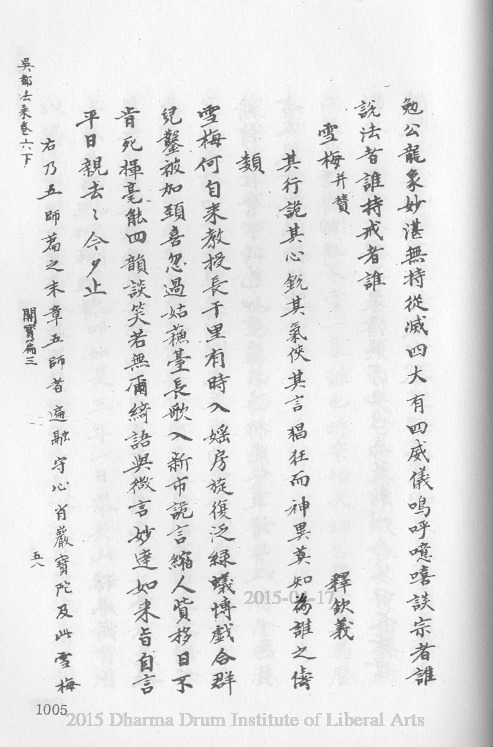 勉公龍象妙湛無持從滅四大有四威儀嗚呼噫嘻談宗者誰
說法者誰持戒者誰
雪梅并贊
釋欽義
其行詭其心銳其氣俠其言猖狂而神異莫知為誰之儔
類
雪梅何自來教授長千里有時入婬房旋復泛綠蟻博戲合群
兒鑿被加頭喜忽過姑蘇臺長歌入新市詭言縮人貲移日不
肯死揮毫能四韻談笑若無爾綺語與微言妙達如來旨自言
平日親去去今夕止
右乃五師篇之末章五師者遍融守心肖嚴寶陀及此雪梅
吳都法乘卷六下
開寶扁三
五八
1005
2015-04-17
2015 Dharma Drum Institute of Liberal Arts